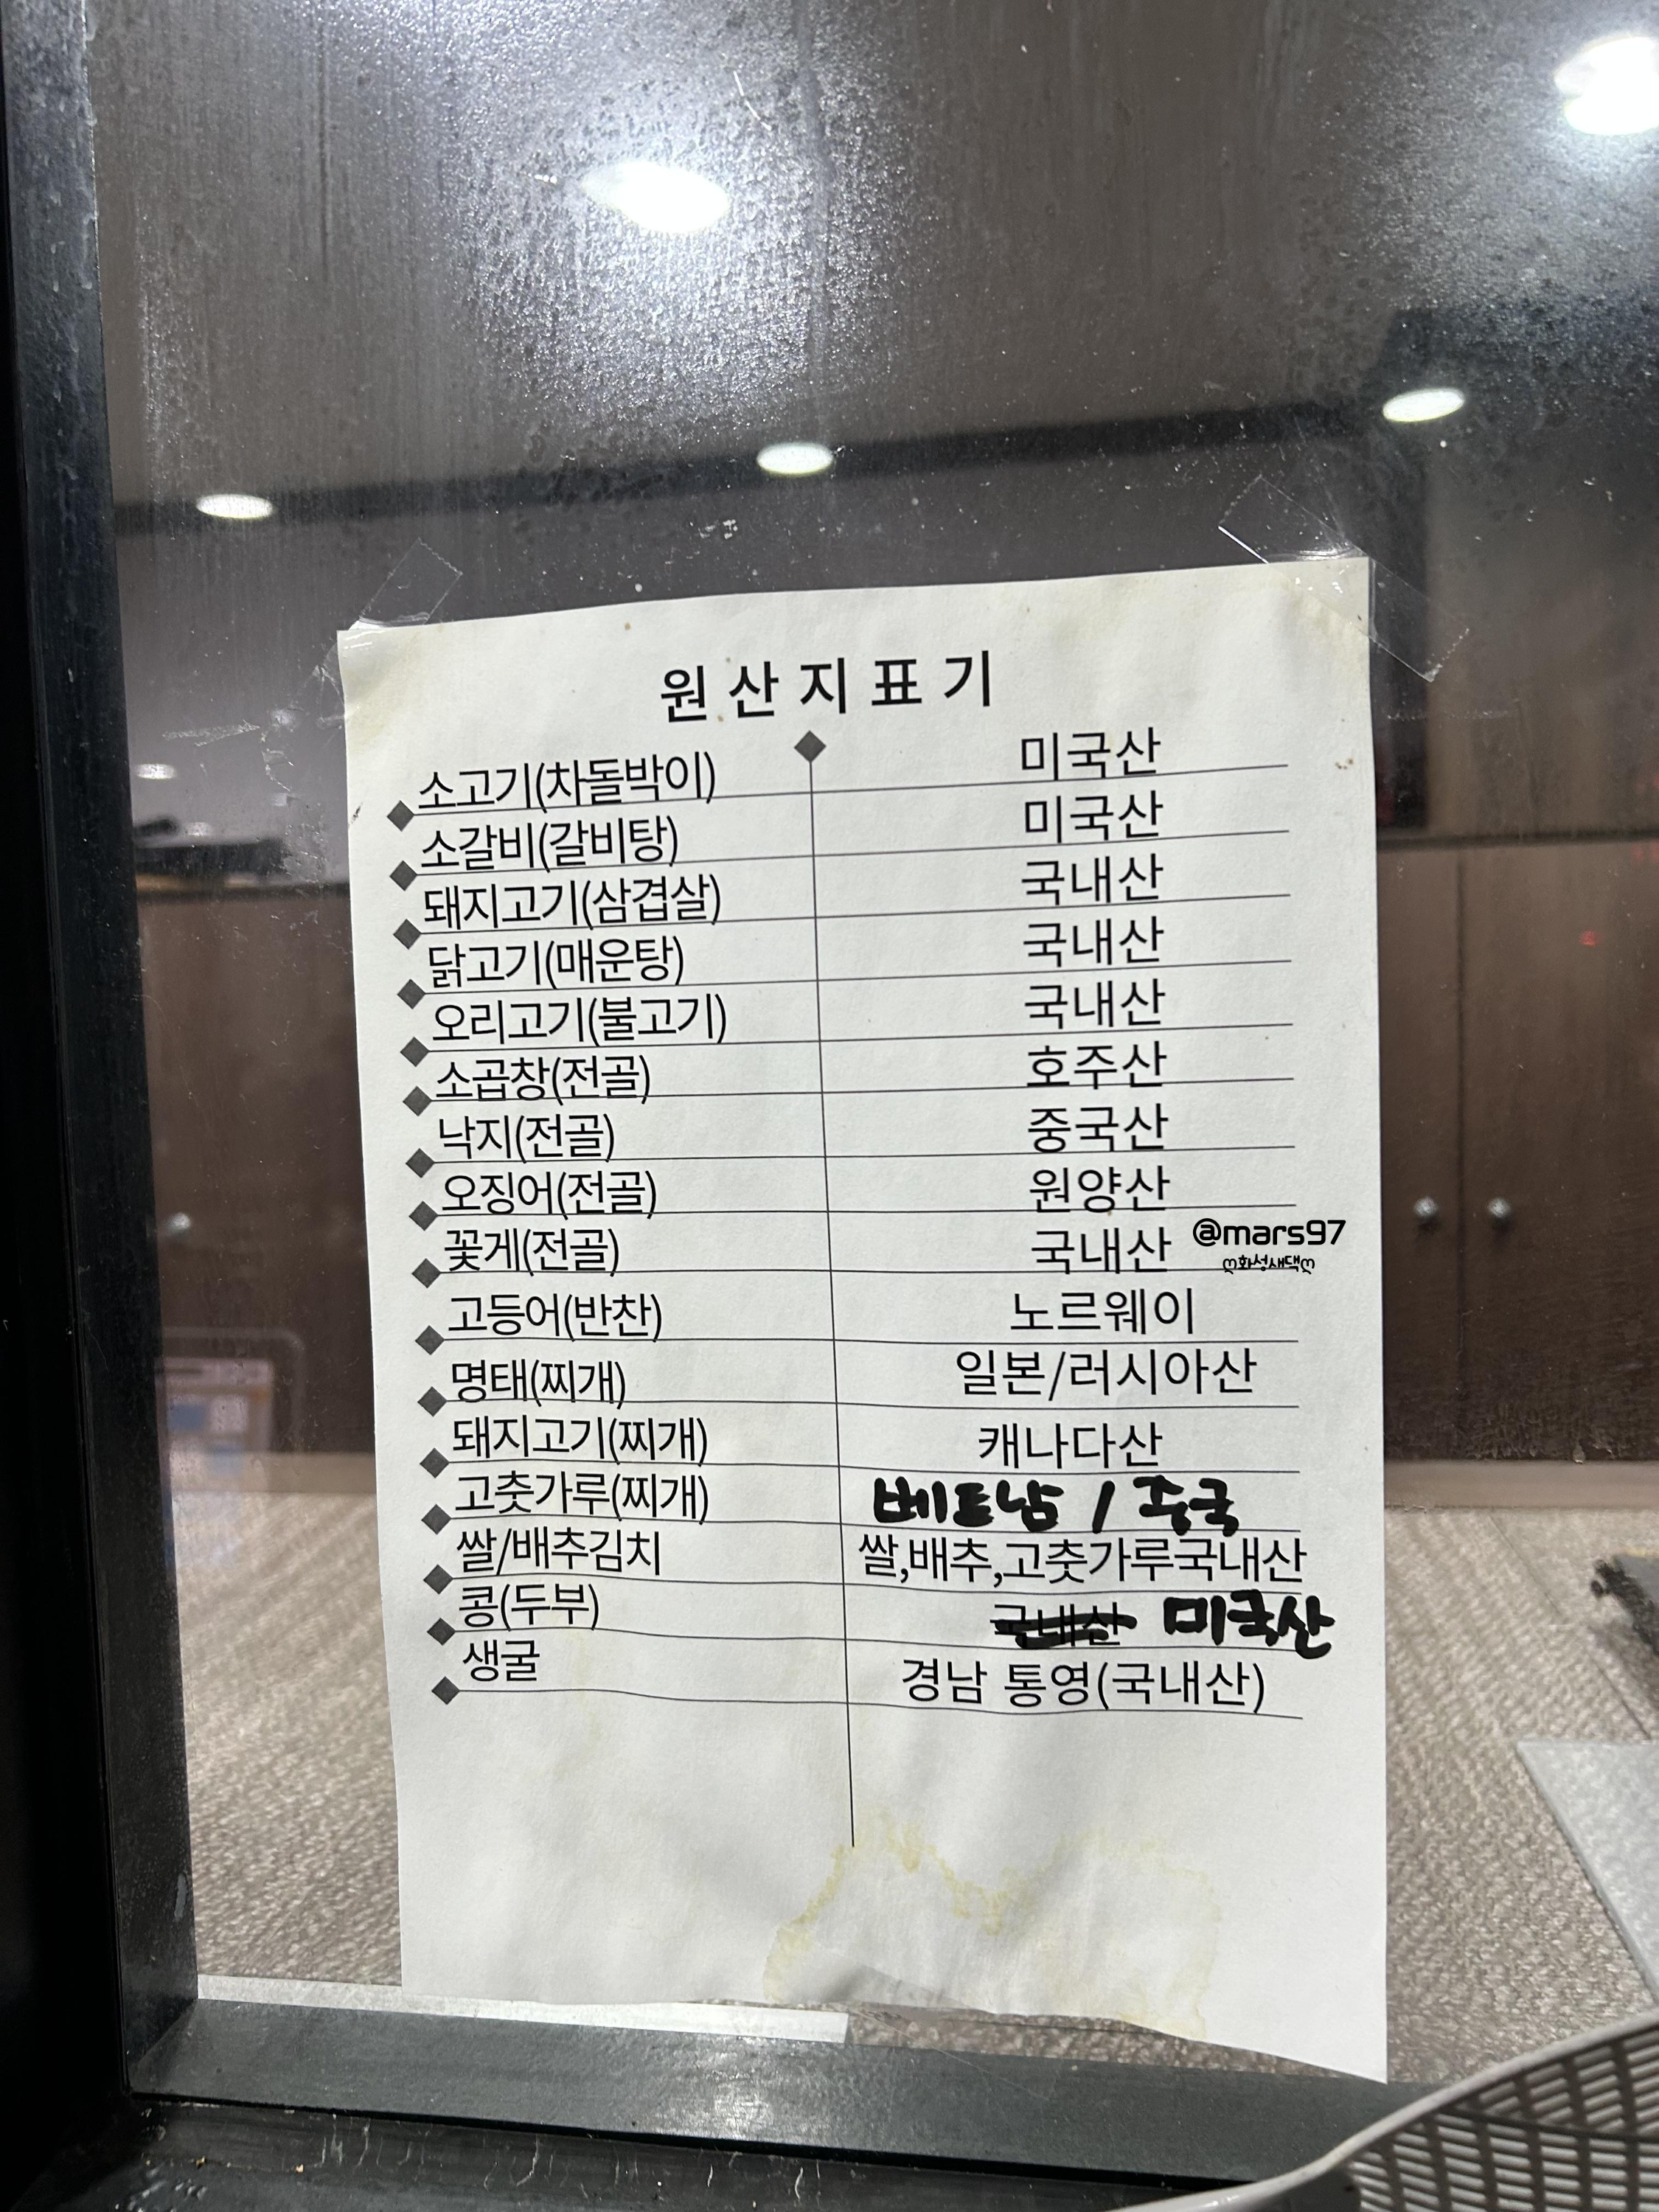 원산지표기
소고기(차돌박이) 미국산
소갈비(갈비탕) 미국산
돼지고기(삼겹살) 국내산
닭고기(매운탕) 국내산
오리고기(불고기) 국내산
소곱창(전골) 호주산
낙지(전골) 중국산
오징어(전골) 원양산
꽃게(전골) 국내산
@mars97
ღ화성새댁ღ
고등어(반찬) 노르웨이
명태(찌개) 일본/러시아산
돼지고기(찌개) 캐나다산
고춧가루(찌개) 베트남 / 중국
쌀/배추김치 쌀,배추,고춧가루국내산
콩(두부) 국내산 미국산
생굴 경남 통영(국내산)